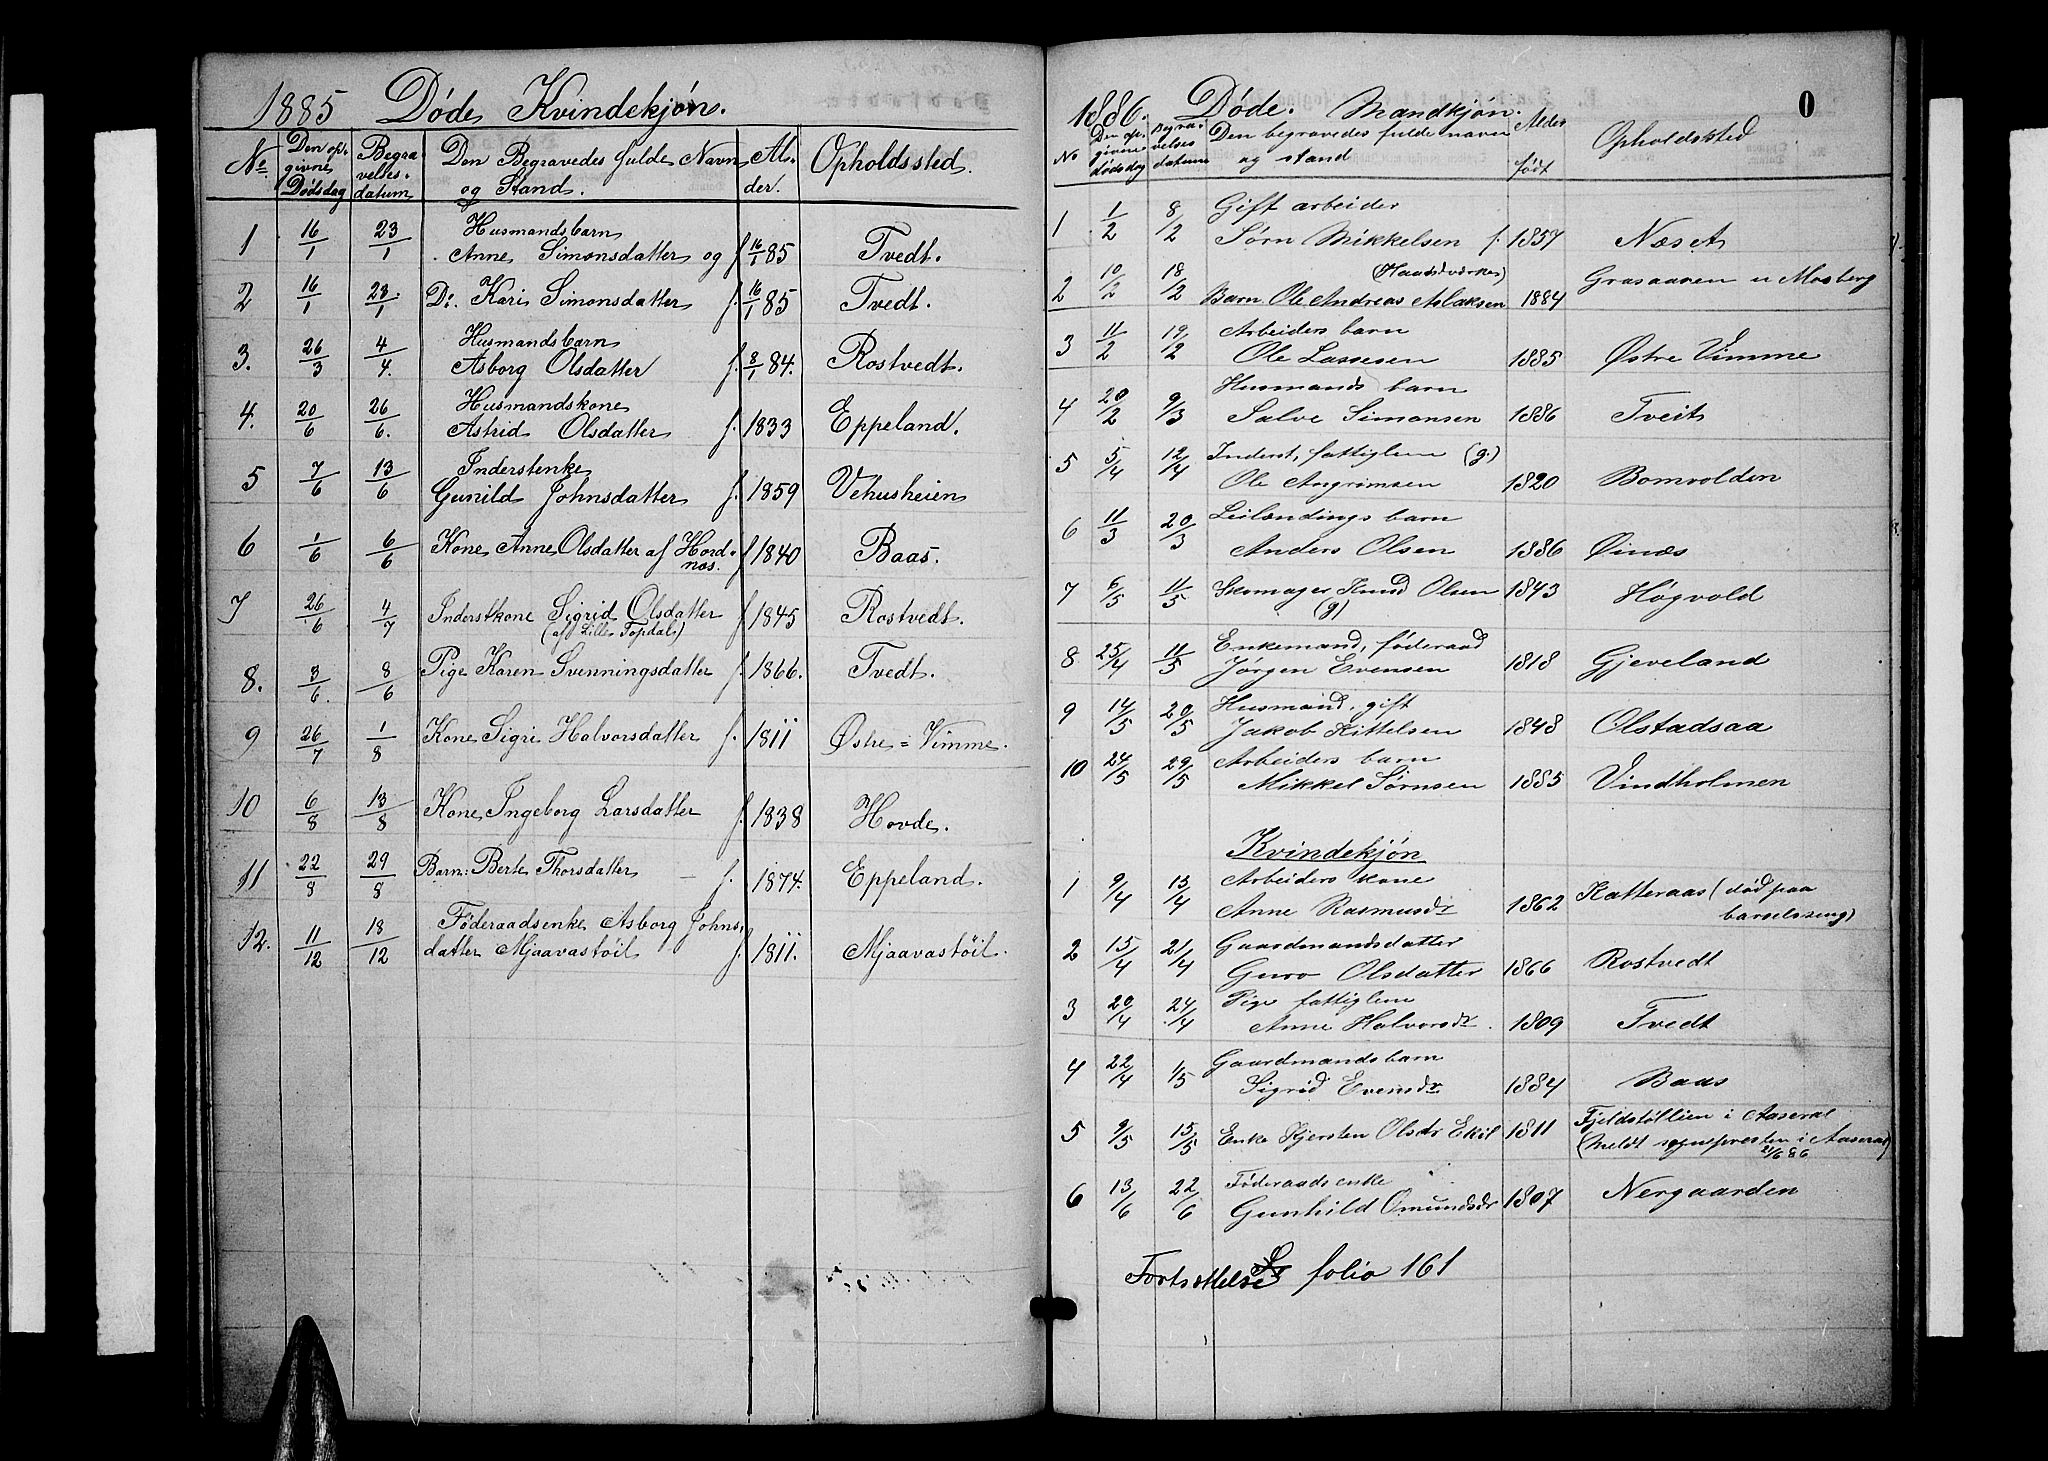 1885 Døde Kvindekjøn.
No. Den opgivne Dødsdag Begravelsesdatum Den Begravedes fulde Navn og Stand. Alder. Opholdssted.
1 16/1 23/1 Husmandsbarn
Anne Simonsdatter og f. 16/1 85 Tvedt.
2 16/1 23/1 Do. Kari Simonsdatter f. 16/1 85 Tvedt.
3. 26/3 4/4. Husmandsbarn
Asborg Olsdatter f. 8/1 84. Rostvedt.
4. 20/6 26/6. Husmandskone
Astrid Olsdatter f. 1833 Eppeland.
5 7/6 13/6 Inderstenke
Gunild Johnsdatter f. 1859 Vehusheien
6 1/6 6/6 Kone Anne Olsdatter af Hordnæs. f 1840 Baas.
7 26/6 4/7 Inderstkone Sigrid Olsdatter f 1845 Rostvedt.
(af Lille Topdal)
8. 3/6. 8/6 Pige Karen Svenningsdatter f. 1866. Tvedt.
9 26/7 1/8 Kone Sigri Halvorsdatter f. 1811 Østre=Vimme.
10 6/8 13/8 Kone Ingeborg Larsdatter f. 1838 Hovde.
11 22/8 29/8 Barn: Berte Thorsdatter – f. 1874. Eppeland.
12. 11/12 18/12 Føderaadsenke Asborg Johns-
datter Mjaavastöil f. 1811. Mjaavastöil.
1886. Døde. Mandkjøn.
No Den opgivne dødsdag Begravelses datum Den begravedes fulde navn og stand Alder født Opholdssted
0
1 1/2 8/2 Gift arbeider
Sørn Mikkelsen f. 1857 Næset
2 10/2 18/2 (Haandværkes)
Barn Ole Andreas Aslaksen 1884 Grasaaven u Mosberg
3 11/2 19/2 Arbeiders barn
Ole Lassesen 1885 Østre Vimme
4 20/2 9/3 Husmands barn
Salve Simonsen 1886 Tveit
5 5/4 12/4 Inderst, fattiglem (g.)
Ole Angrimsen 1820 Bomvolden
6 11/3 20/3 Leilændings barn
Anders Olsen 1886 Øinæs
7 6/5 11/5 Skomager Knud Olsen 1843 Høgvold
(g)
8 25/4 11/5 Enkemand, føderaad
Jørgen Evensen 1818 Gjeveland
9 14/5 20/5 Husmand, gift
Jakob Kittelsen 1848 Olstadsaa
10 24/5 29/5 Arbeiders barn
Mikkel Sørnsen 1885 Vindholmen
Kvindekjøn
1 9/4 13/4 Arbeiders kone
Anne Rasmusdr 1862 Katteraas (død paa
barselseng)
2 15/4 21/4 Gaardmandsdatter
Guro Olsdatter 1866 Rostvedt
3 20/4 24/4 Pige fattiglem
Anne Halvorsdr. 1809 Tvedt
4 22/4 1/5 Gaardmandsbarn
Sigrid Evensdr 1884 Baas
5 9/5 15/5 Enke Kjersten Olsdr Ekil 1811 Fjeldstøllien i Aaseral
(Meldt sognepresten i Aaseral)
21/6 86
6 13/6 22/6 Føderaadsenke
Gunhild Omundsdr 1807 Nergaarden
Fortsættelse folio 161